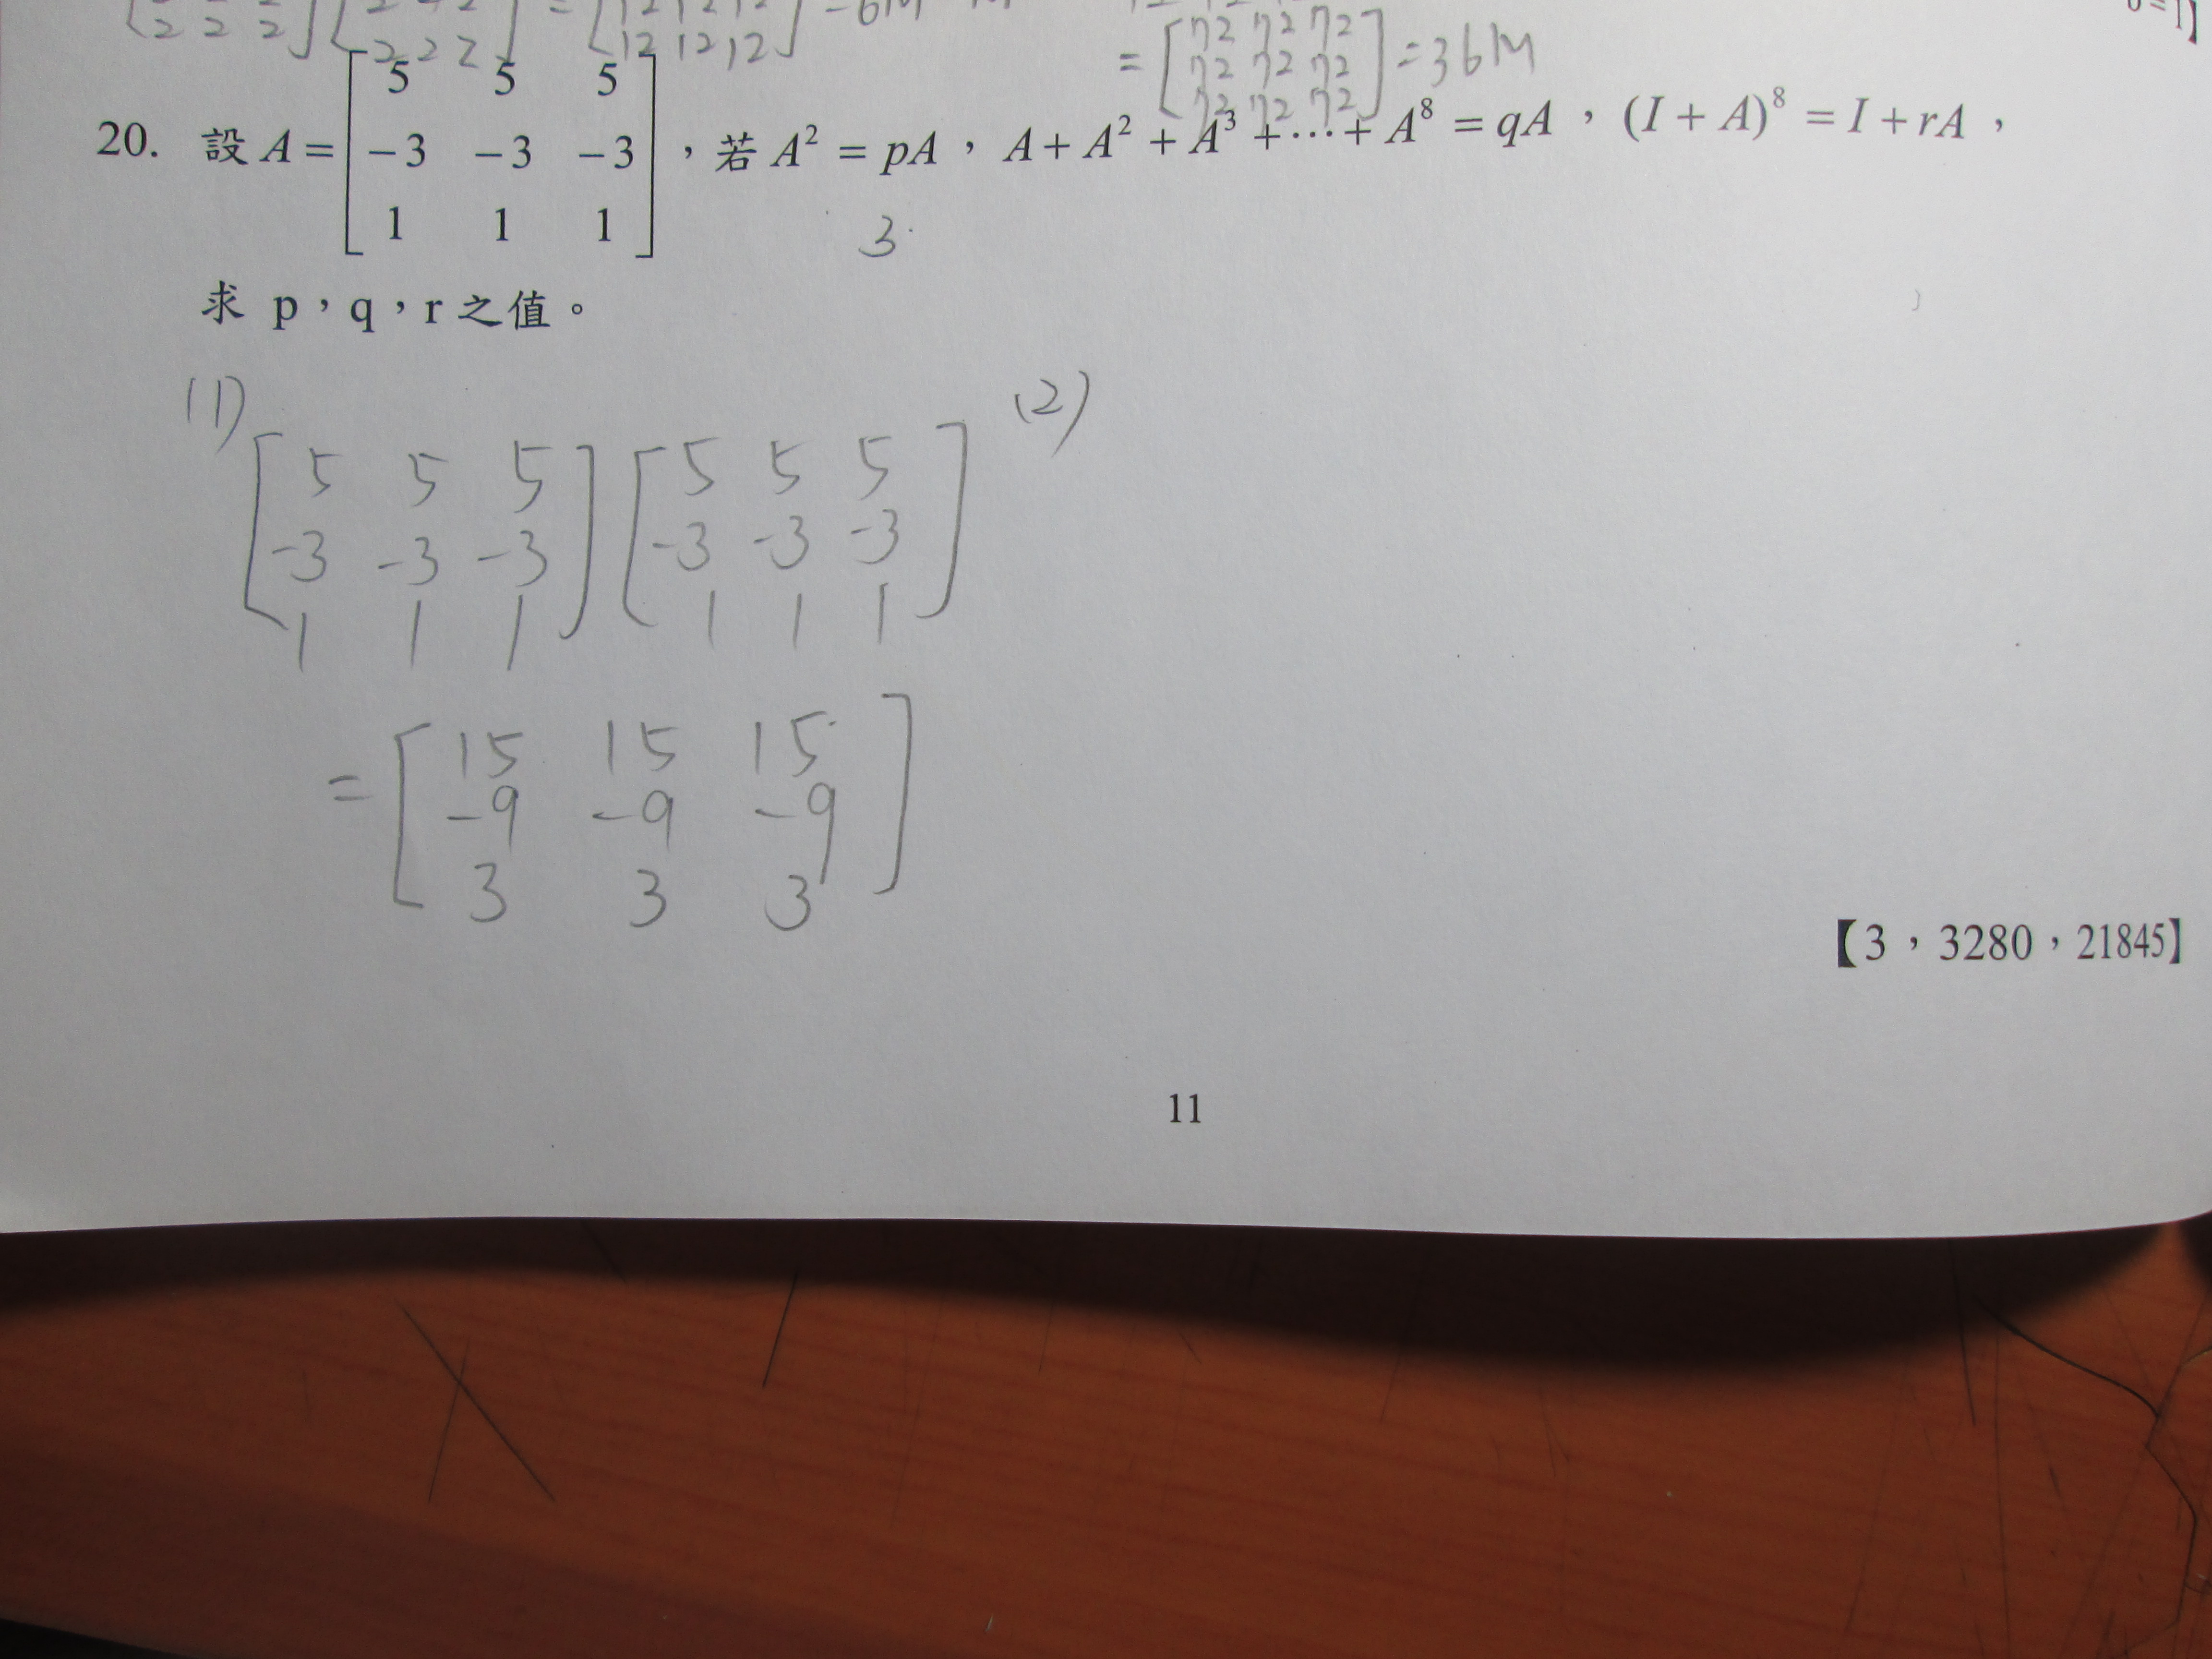 2 2 2] [2 2 2] = [12 12 12] = 6M
= [72 72 72
72 72 72
72 72 72] = 36M
20. 設 A = [5 5 5
-3 -3 -3
1 1 1] ，若 A² = pA ， A + A² + A³ + ⋯ + A⁸ = qA ， (I + A)⁸ = I + rA ，
3
求 p，q，r 之值。
(1)
[5 5 5] [5 5 5]
[-3 -3 -3] [-3 -3 -3]
[1 1 1] [1 1 1]
= [15 15 15
-9 -9 -9
3 3 3]
(2)
【3，3280，21845】
11